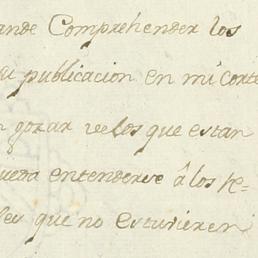 ande Comprehender los
su publicacion en mi corte
n gozar de los que estan
ueda entenderse â los re=
les que no estuvieren